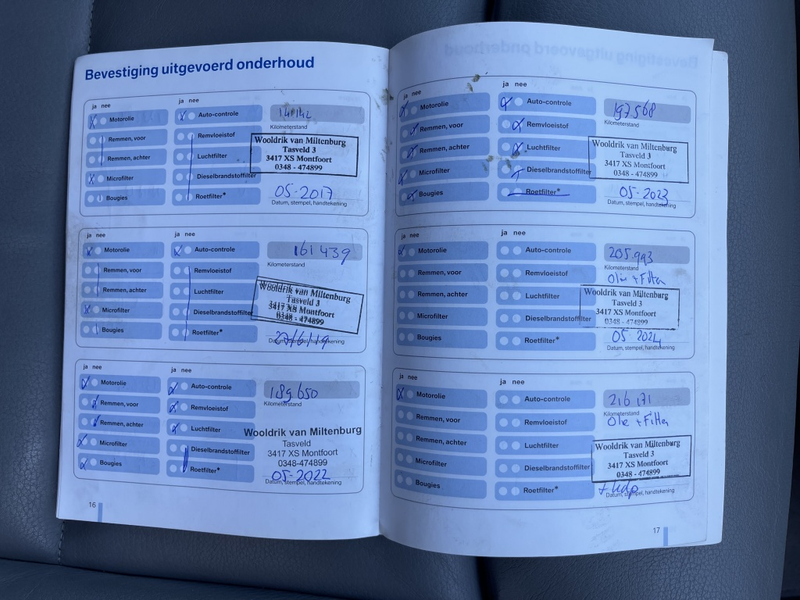 Bevestiging uitgevoerd onderhoud
ja nee
ja nee
Motorolie
Remmen, voor
Remmen, achter
Microfilter
Bougies
Auto-controle
Remvloeistof
Luchtfilter
Dieselbrandstoffilter
Roetfilter*
Kilometerstand
Wooldrik van Miltenburg
Tasveld 3
3417 XS Montfoort
0348 - 474899
05-2017
Datum, stempel, handtekening
ja nee
ja nee
Motorolie
Remmen, voor
Remmen, achter
Microfilter
Bougies
Auto-controle
Remvloeistof
Luchtfilter
Dieselbrandstoffilter
Roetfilter*
161439
Kilometerstand
Wooldrik van Miltenburg
Tasveld 3
3417 XS Montfoort
0348 - 474899
Datum, stempel, handtekening
ja nee
ja nee
Motorolie
Remmen, voor
Remmen, achter
Microfilter
Bougies
Auto-controle
Remvloeistof
Luchtfilter
Dieselbrandstoffilter
Roetfilter*
189650
Kilometerstand
Wooldrik van Miltenburg
Tasveld
3417 XS Montfoort
0348-474899
05-2022
Datum, stempel, handtekening
16
ja nee
ja nee
Motorolie
Remmen, voor
Remmen, achter
Microfilter
Bougies
Auto-controle
Remvloeistof
Luchtfilter
Dieselbrandstoffilter
Roetfilter*
197568
Kilometerstand
Wooldrik van Miltenburg
Tasveld 3
3417 XS Montfoort
0348 - 474899
05-2023
Datum, stempel, handtekening
ja nee
ja nee
Motorolie
Remmen, voor
Remmen, achter
Microfilter
Bougies
Auto-controle
Remvloeistof
Luchtfilter
Dieselbrandstoffilter
Roetfilter*
205.993
Kilometerstand
Olie + Filter
Wooldrik van Miltenburg
Tasveld 3
3417 XS Montfoort
0348 - 474899
05-2024
Datum, stempel, handtekening
ja nee
ja nee
Motorolie
Remmen, voor
Remmen, achter
Microfilter
Bougies
Auto-controle
Remvloeistof
Luchtfilter
Dieselbrandstoffilter
Roetfilter*
216171
Kilometerstand
Olie + Filter
Wooldrik van Miltenburg
Tasveld 3
3417 XS Montfoort
0348 - 474899
Datum, stempel, handtekening
17